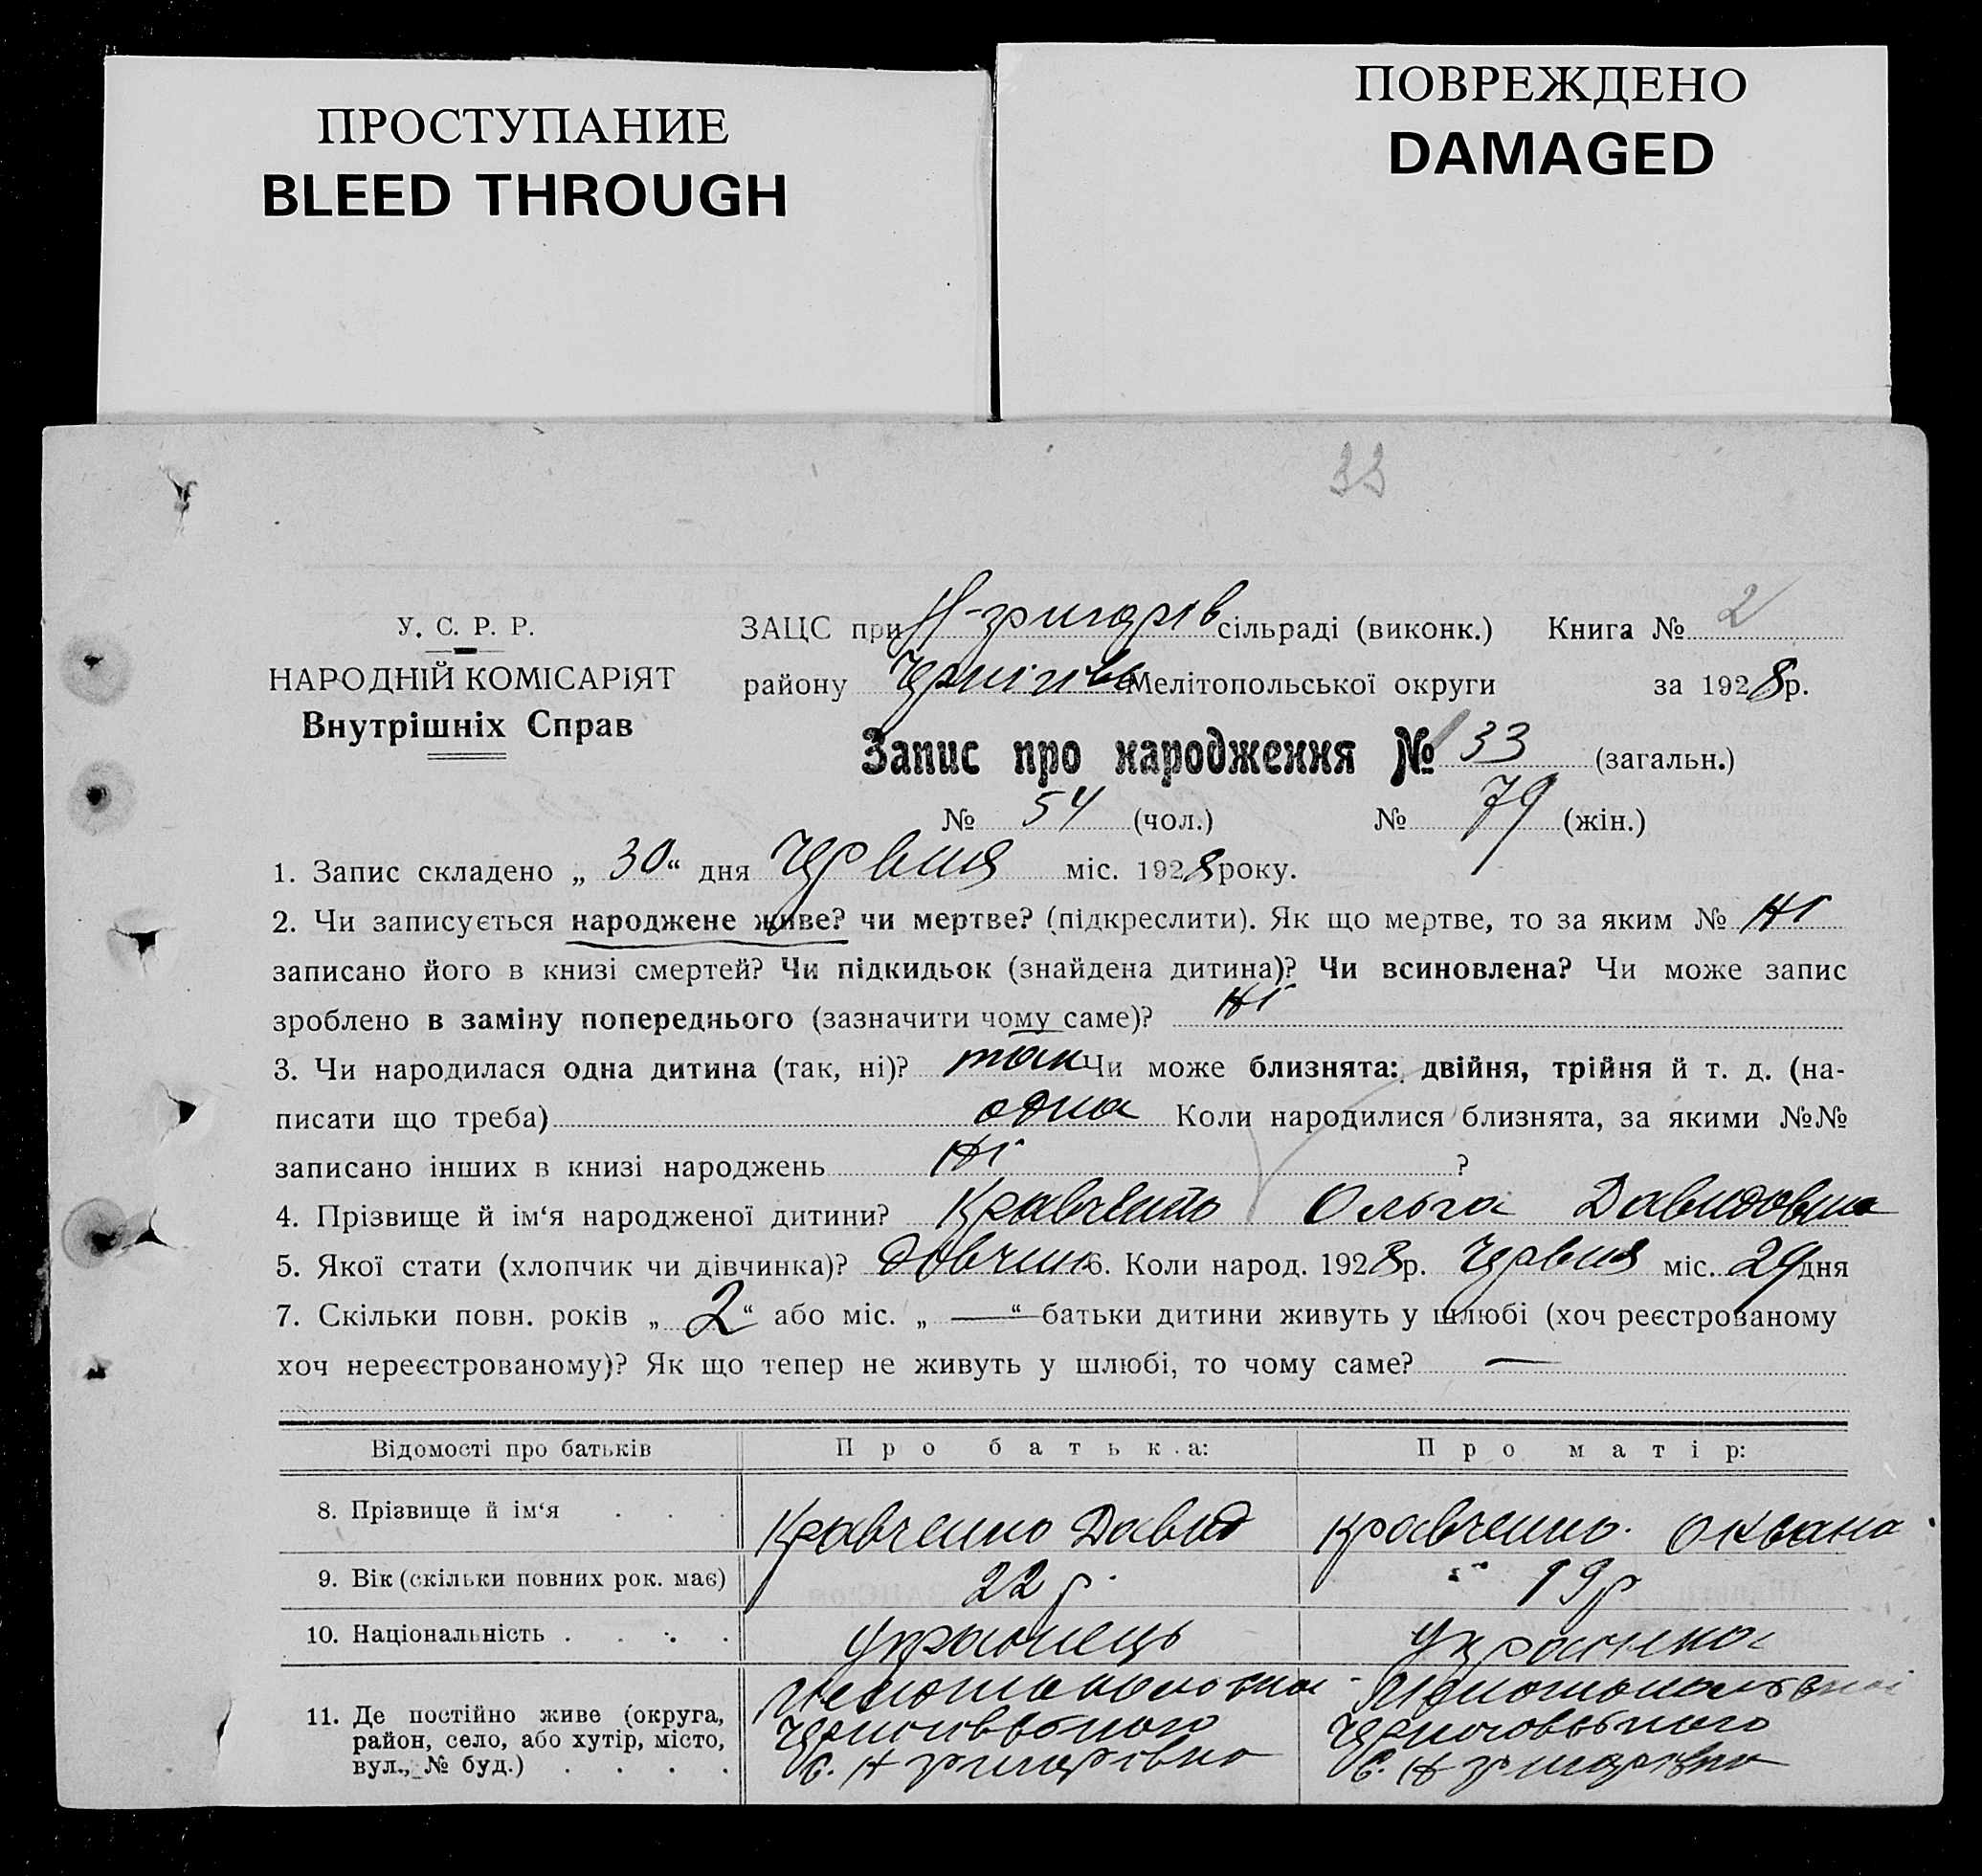 ПРОСТУПАНИЕ
BLEED THROUGH
ПОВРЕЖДЕНО
DAMAGED
33
У. С. Р. Р.
НАРОДНІЙ КОМІСАРІЯТ
Внутрішніх Справ
ЗАЦС при Н-григорів сільраді (виконк.) Книга № 2
району Чернігівс Мелітопольської округи за 1928 р.
Запис про народження № 133 (загальн.)
№ 54 (чол.) № 79 (жін.)
1. Запис складено „ 30 “ дня Червня міс. 1928 року.
2. Чи записується народжене живе? чи мертве? (підкреслити). Як що мертве, то за яким № Ні
записано його в книзі смертей? Чи підкидьок (знайдена дитина)? Чи всиновлена? Чи може запис
зроблено в заміну попереднього (зазначити чому саме)? Ні
3. Чи народилася одна дитина (так, ні)? так Чи може близнята: двійня, трійня й т. д. (на-
писати що треба) одна Коли народилися близнята, за якими №№
записано інших в книзі народжень Ні ?
4. Прізвище й ім‘я народженої дитини? Кравченко Ольга Давидовна
5. Якої стати (хлопчик чи дівчинка)? 6. Коли народ. 1928 р. Червня міс. 29 дня
7. Скільки повн. років „ 2 “ або міс. „ — “ батьки дитини живуть у шлюбі (хоч реєстрованому
хоч нереєстрованому)? Як що тепер не живуть у шлюбі, то чому саме? —
Відомості про батьків Про батька: Про матір:
8. Прізвище й ім‘я . . . Кравченко Давид Кравченко Оксана
9. Вік (скільки повних рок. має) 22 р. 19 р
10. Національність . . . . Українець Українка
11. Де постійно живе (округа,
район, село, або хутір, місто,
вул., № буд.) . . . .
с. Н григорівка с. Н григорівка